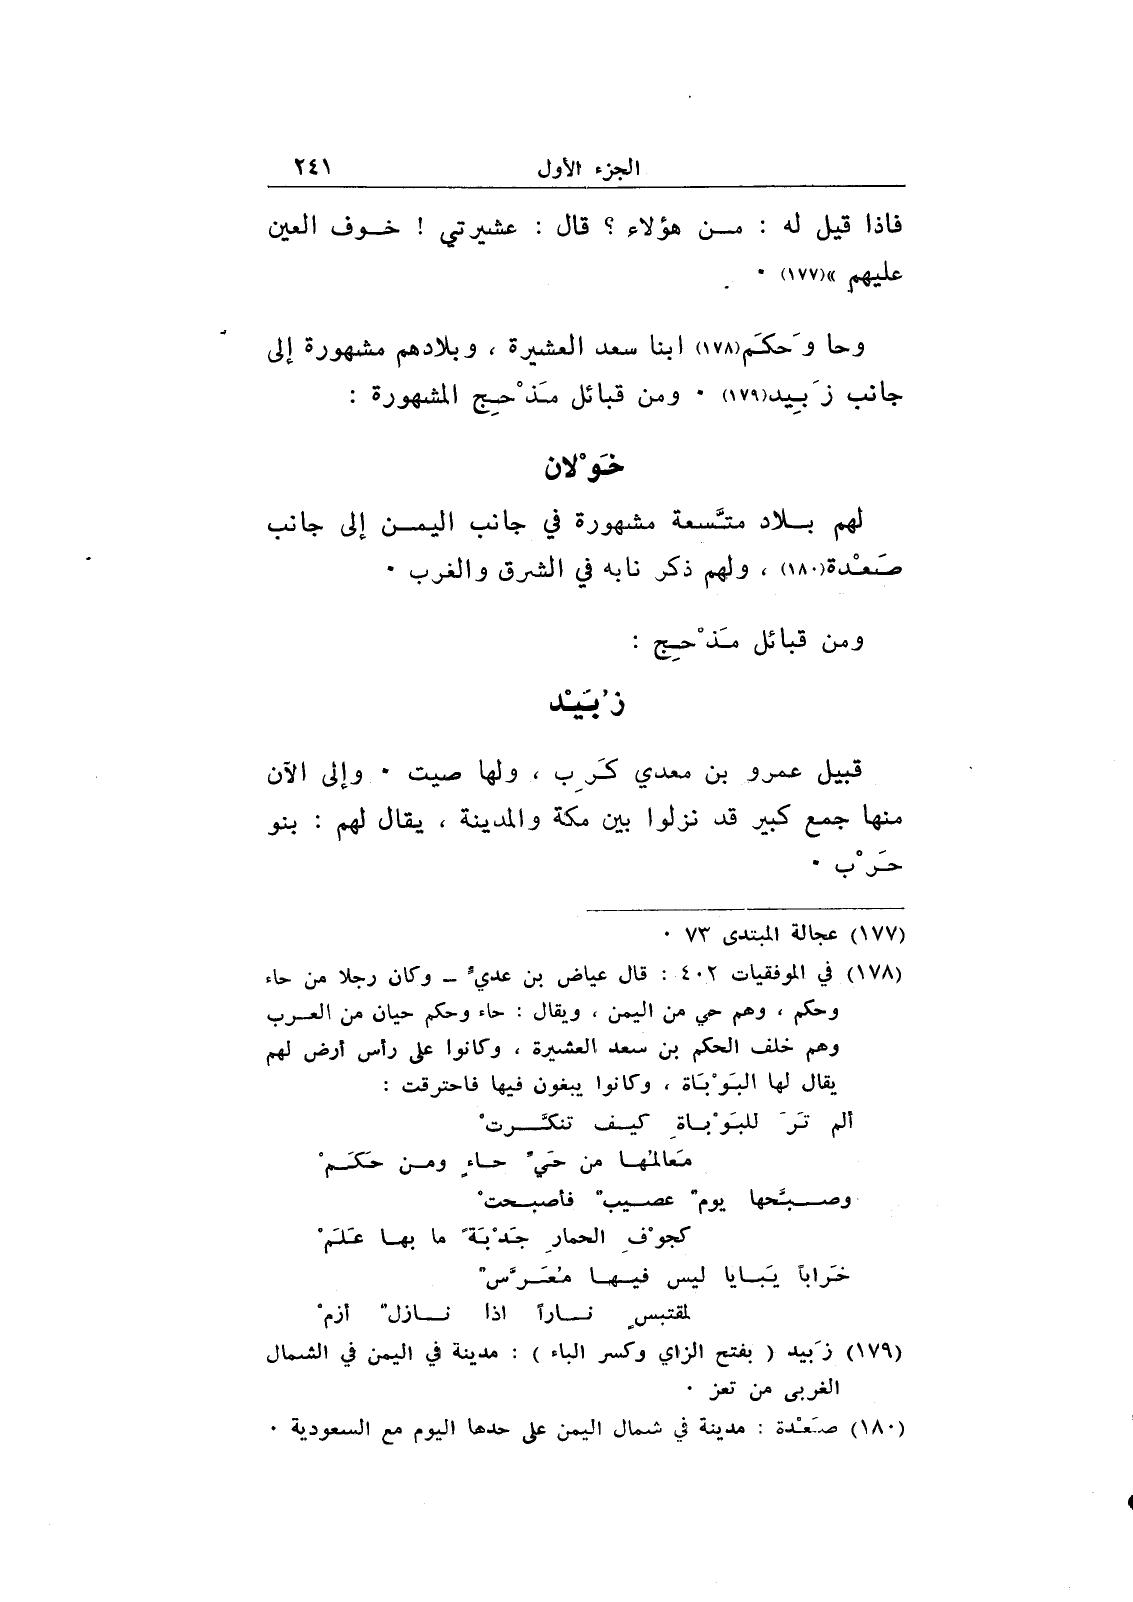 الجزء الأول ٢٤١
فاذا قيل له : مـــن هؤلاء ؟ قال : عشيرتي ! خــوف العين
عليهم »(١٧٧) ٠
وحا وَحكَم(١٧٨) ابنا سعد العشيرة ، وبلادهم مشهورة إلى
جانب زَبِيد(١٧٩) ٠ ومن قبائل مَذْحِج المشهورة :
خَوْلان
لهم بــلاد متَّسعة مشهورة في جانب اليمــن إلى جانب
صَعْدة(١٨٠) ، ولهم ذكر نابه في الشرق والغرب ٠
ومن قبائل مَذْحِج :
زُبَيْد
قبيل عمرو بن معدي كَرِب ، ولها صيت ٠ وإلى الآن
منها جمع كبير قد نزلوا بين مكة والمدينة ، يقال لهم : بنو
حَرْب ٠
(١٧٧) عجالة المبتدى ٧٣ ٠
(١٧٨) في الموفقيات ٤٠٢ : قال عياض بن عديٍّ ــ وكان رجلا من حاء
وحكم ، وهم حي من اليمن ، ويقال : حاء وحكم حيان من العــرب
وهم خلف الحكم بن سعد العشيرة ، وكانوا على رأس أرض لهم
يقال لها البَوْبَاة ، وكانوا يبغون فيها فاحترقت :
ألم تَرَ للبَوْبــاةِ كيــف تنكَّــــرتْ
مَعَالمُهــا من حَيِّ حــاءٍ ومــن حَكَــمْ
وصــــبَّحها يومٌ عصــيبٌ فأصبــحتْ
كجوْفِ الحمارِ جَدْبَةً ما بهــا عَلَمْ
خَراباً يَبــابا ليس فيــهــا مُعَــرَّسٌ
لمقتبسٍ نــــاراً اذا نــــازلٌ أزمْ
(١٧٩) زَبيد ( بفتح الزاي وكسر الباء ) : مدينة في اليمن في الشمال
الغربى من تعز ٠
(١٨٠) صَعْدة : مدينة في شمال اليمن على حدها اليوم مع السعودية ٠